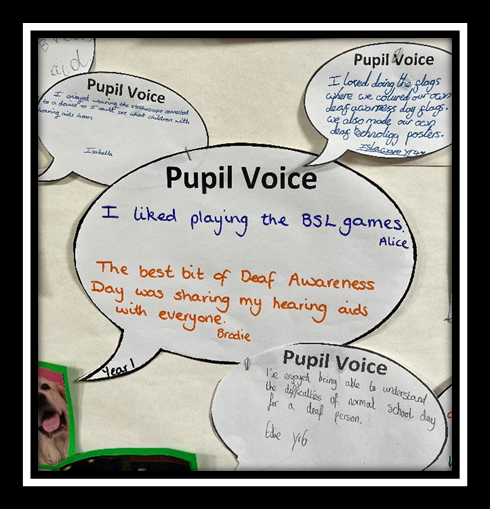 aid
Pupil Voice
I enjoyed wearing the stethoscope connected
to a device so I could see what children with
hearing aids hear.
Isabella
Pupil Voice
I loved doing the flags
where we coloured our own
deaf awarness day flags.
we also made our own
deaf technoligy posters.
Yr4
Pupil Voice
I liked playing the BSL games.
Alice
The best bit of Deaf Awareness
Day was sharing my hearing aids
with everyone.
Brodie
Year 1
Pupil Voice
I've enjoyed being able to understand
the difficulties of normal school day
for a deaf person.
Edie Yr6